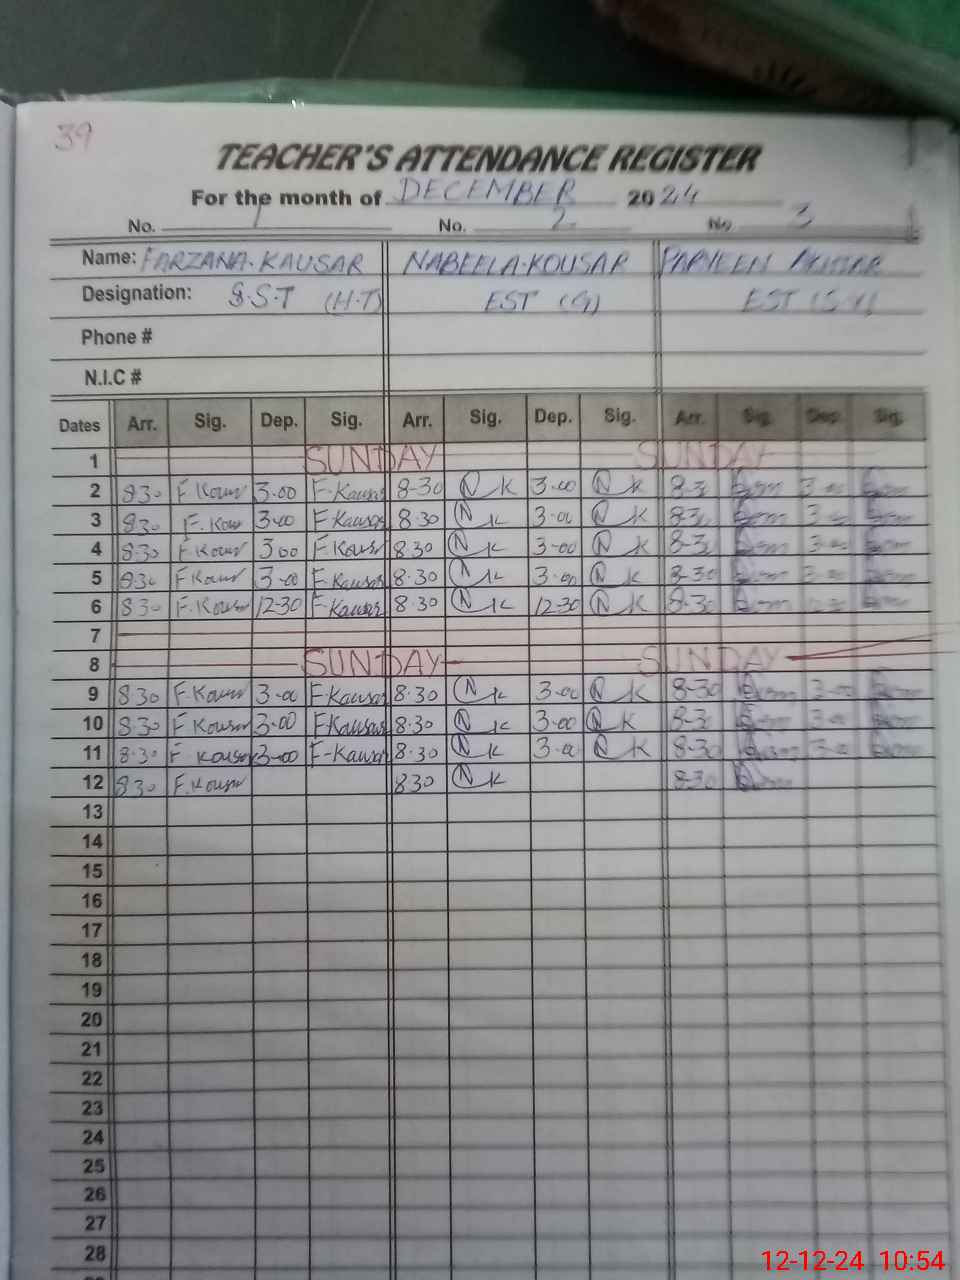 39
TEACHER'S ATTENDANCE REGISTER
For the month of DECEMBER 2024
No. 1 No. 2 No 3
Name: FARZANA. KAUSAR NABEELA. KOUSAR PARVEEN AKHTAR
Designation: S.S.T (H.T) EST (G) EST
Phone #
N.I.C #
Dates Arr. Sig. Dep. Sig. Arr. Sig. Dep. Sig. Arr. Sig. Dep. Sig.
1 SUNDAY SUNDAY
2 8 30 F Kausar 3.00 F-Kausar 8-30 N K 3.00 N K 8-30 3-00
3 8.30 F. Kausar 3.00 F Kausar 8.30 N K 3-00 N K 8-30 3-00
4 8.30 F Kausar 3 00 F. Kausar 8.30 N K 3-00 N K 8-30 3-00
5 8.30 F Kausar 3-00 F. Kausar 8.30 N K 3.00 N K 8-30 3-00
6 8.30 F. Kausar 12-30 F-Kausar 8.30 N K 12-30 N K 8-30
7
8 SUNDAY SUNDAY
9 8.30 F. Kausar 3-00 F-Kausar 8.30 N K 3-00 N K 8-30 3-00
10 8.30 F Kousar 3-00 F-Kausar 8.30 N K 3.00 N K 8-30 3-00
11 8.30 F. Kousar 3-00 F-Kausar 8.30 N K 3-00 N K 8-30 3-00
12 8 30 F. Kousar 8 30 N K 8-30
13
14
15
16
17
18
19
20
21
22
23
24
25
26
27
28
12-12-24 10:54